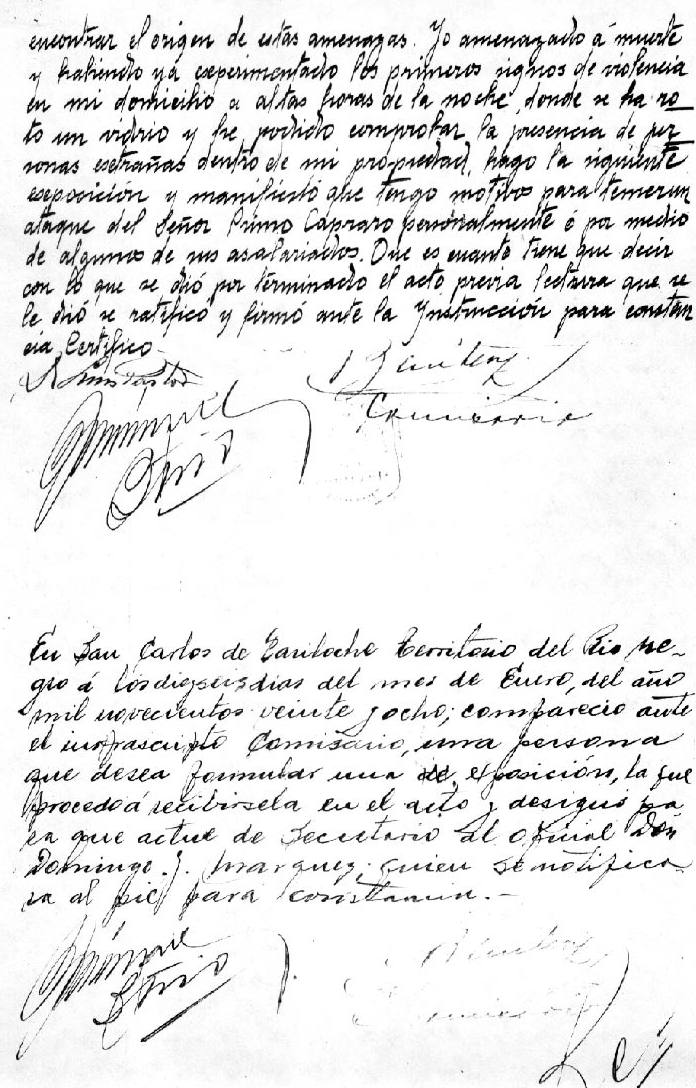 encontrar el origen de estas amenazas. Yo amenazado á muerte
y habiendo ya experimentado los primeros signos de violencia
en mi domicilio a altas horas de la noche, donde se ha ro-
to un vidrio y he podido comprobar la presencia de per
sonas estrañas dentro de mi propiedad, hago la siguiente
esposición y manifiesto que tengo motivos para temer un
ataque del Señor Primo Capraro personalmente ó por medio
de algunos de sus asalariados. Que es cuanto tiene que decir
con lo que se dió por terminado el acto previa lectura que se
le dió se ratificó y firmó ante la Instrucción para constan
cia, Certifico.-
Comisario
En San Carlos de Bariloche Territorio del Rio Ne-
gro á los diez y seis dias del mes de Enero, del año
mil novecientos veinte y ocho; comparecio ante
el infrascripto Comisario, una persona
que desea formular una exposición, la que
procedo á recibirsela en el acto y designo pa
ra que actue de Secretario al oficial Don
Domingo J. Marquez, quien se notifica-
ra al pie para constancia.-
Comisario